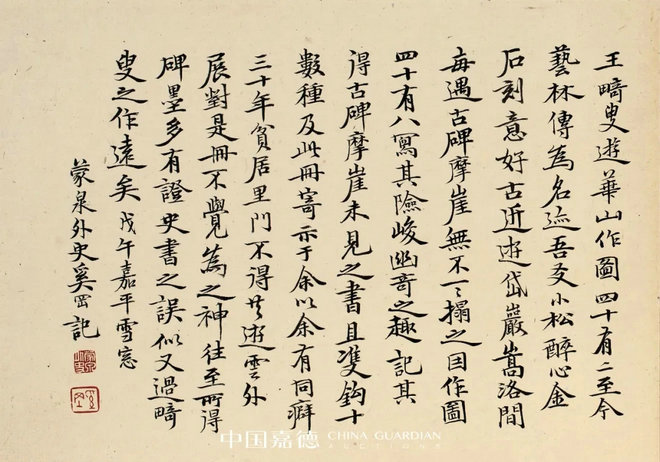 王畸叟遊華山作圖四十有二至今
藝林傳為名迹吾友小松醉心金
石刻意好古近遊岱巖嵩洛間
每遇古碑摩崖無不一一搨之因作圖
四十有八寫其險峻幽奇之趣記其
得古碑摩崖未見之書且雙鈎十
數種及此冊寄示于余以余有同癖
三十年貧居里門不得共遊雲外
展對是冊不覺為之神往至所得
碑墨多有證史書之誤似又過畸
叟之作遠矣戊午嘉平雪窓
蒙泉外史奚岡記
中国嘉德 CHINA GUARDIAN
AUCTIONS